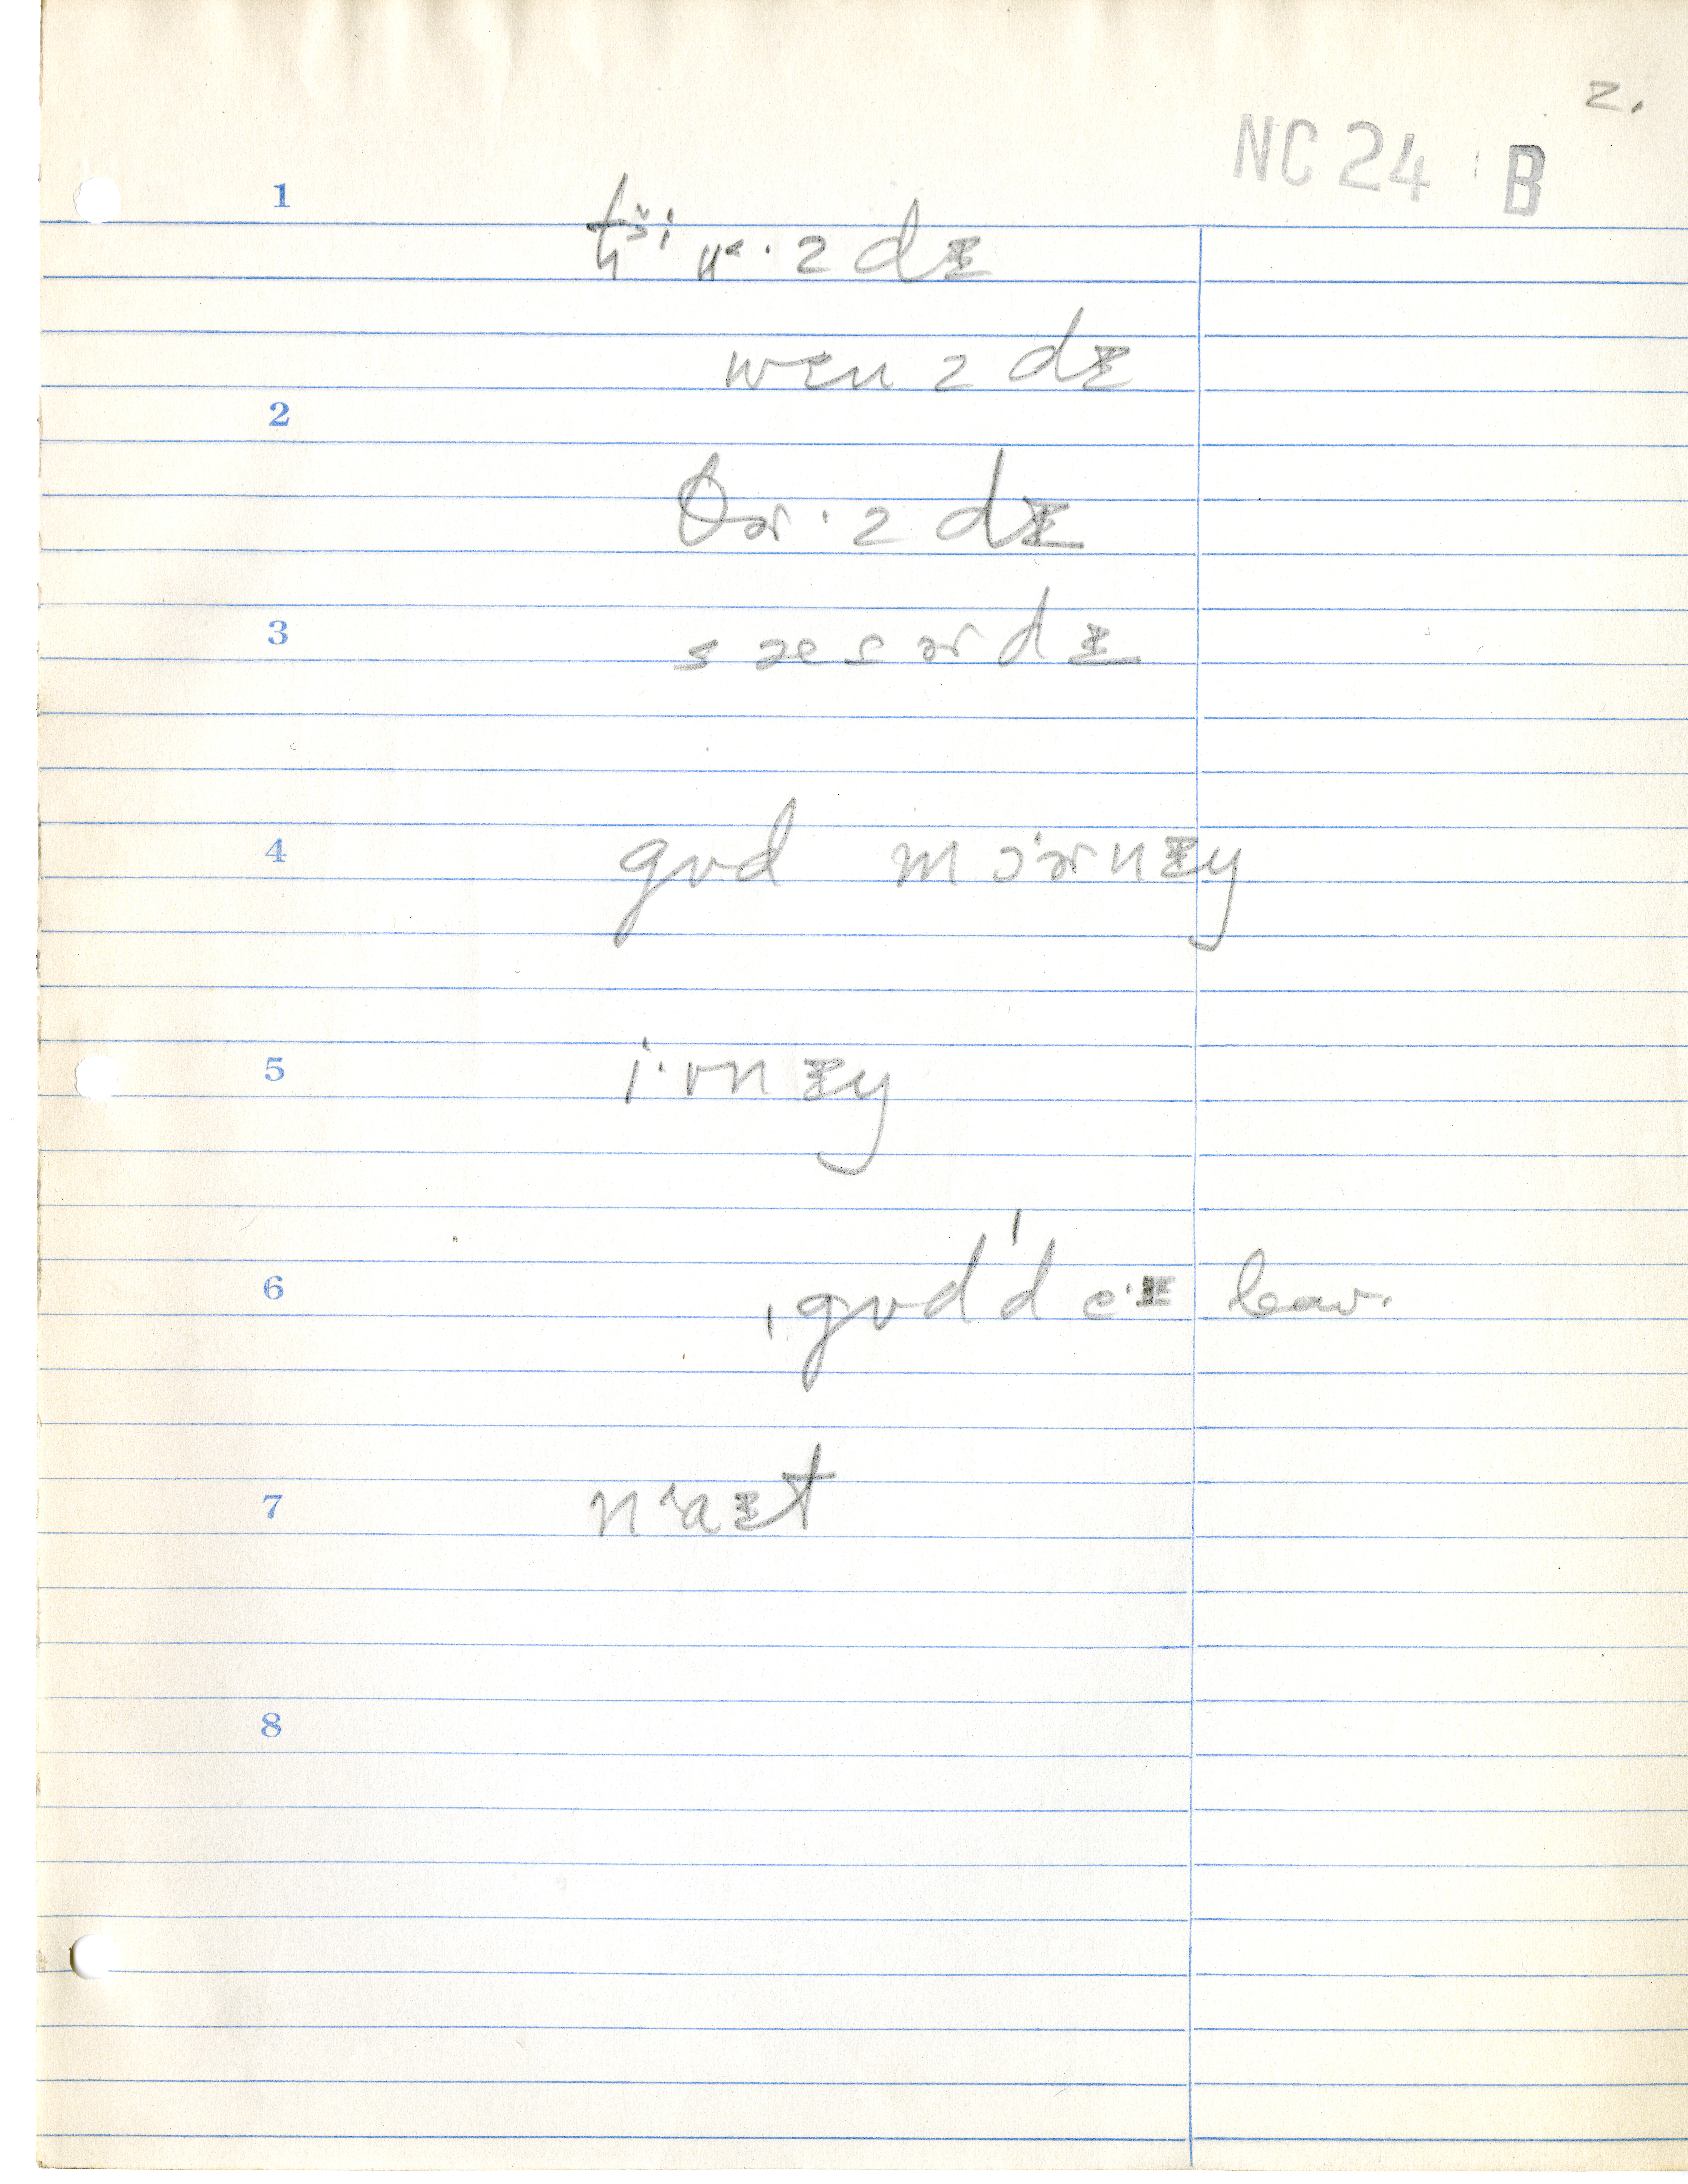 2.
NC 24 B
1
wɛnzdɪ
2
θɚ·zdɪ
3
sæsɚdɪ
4
gʊd mɔ'ɚnɪŋ
5
i·vnɪŋ
6
ˌgʊd'de·ɪ leav.
7
n'aɪt
8